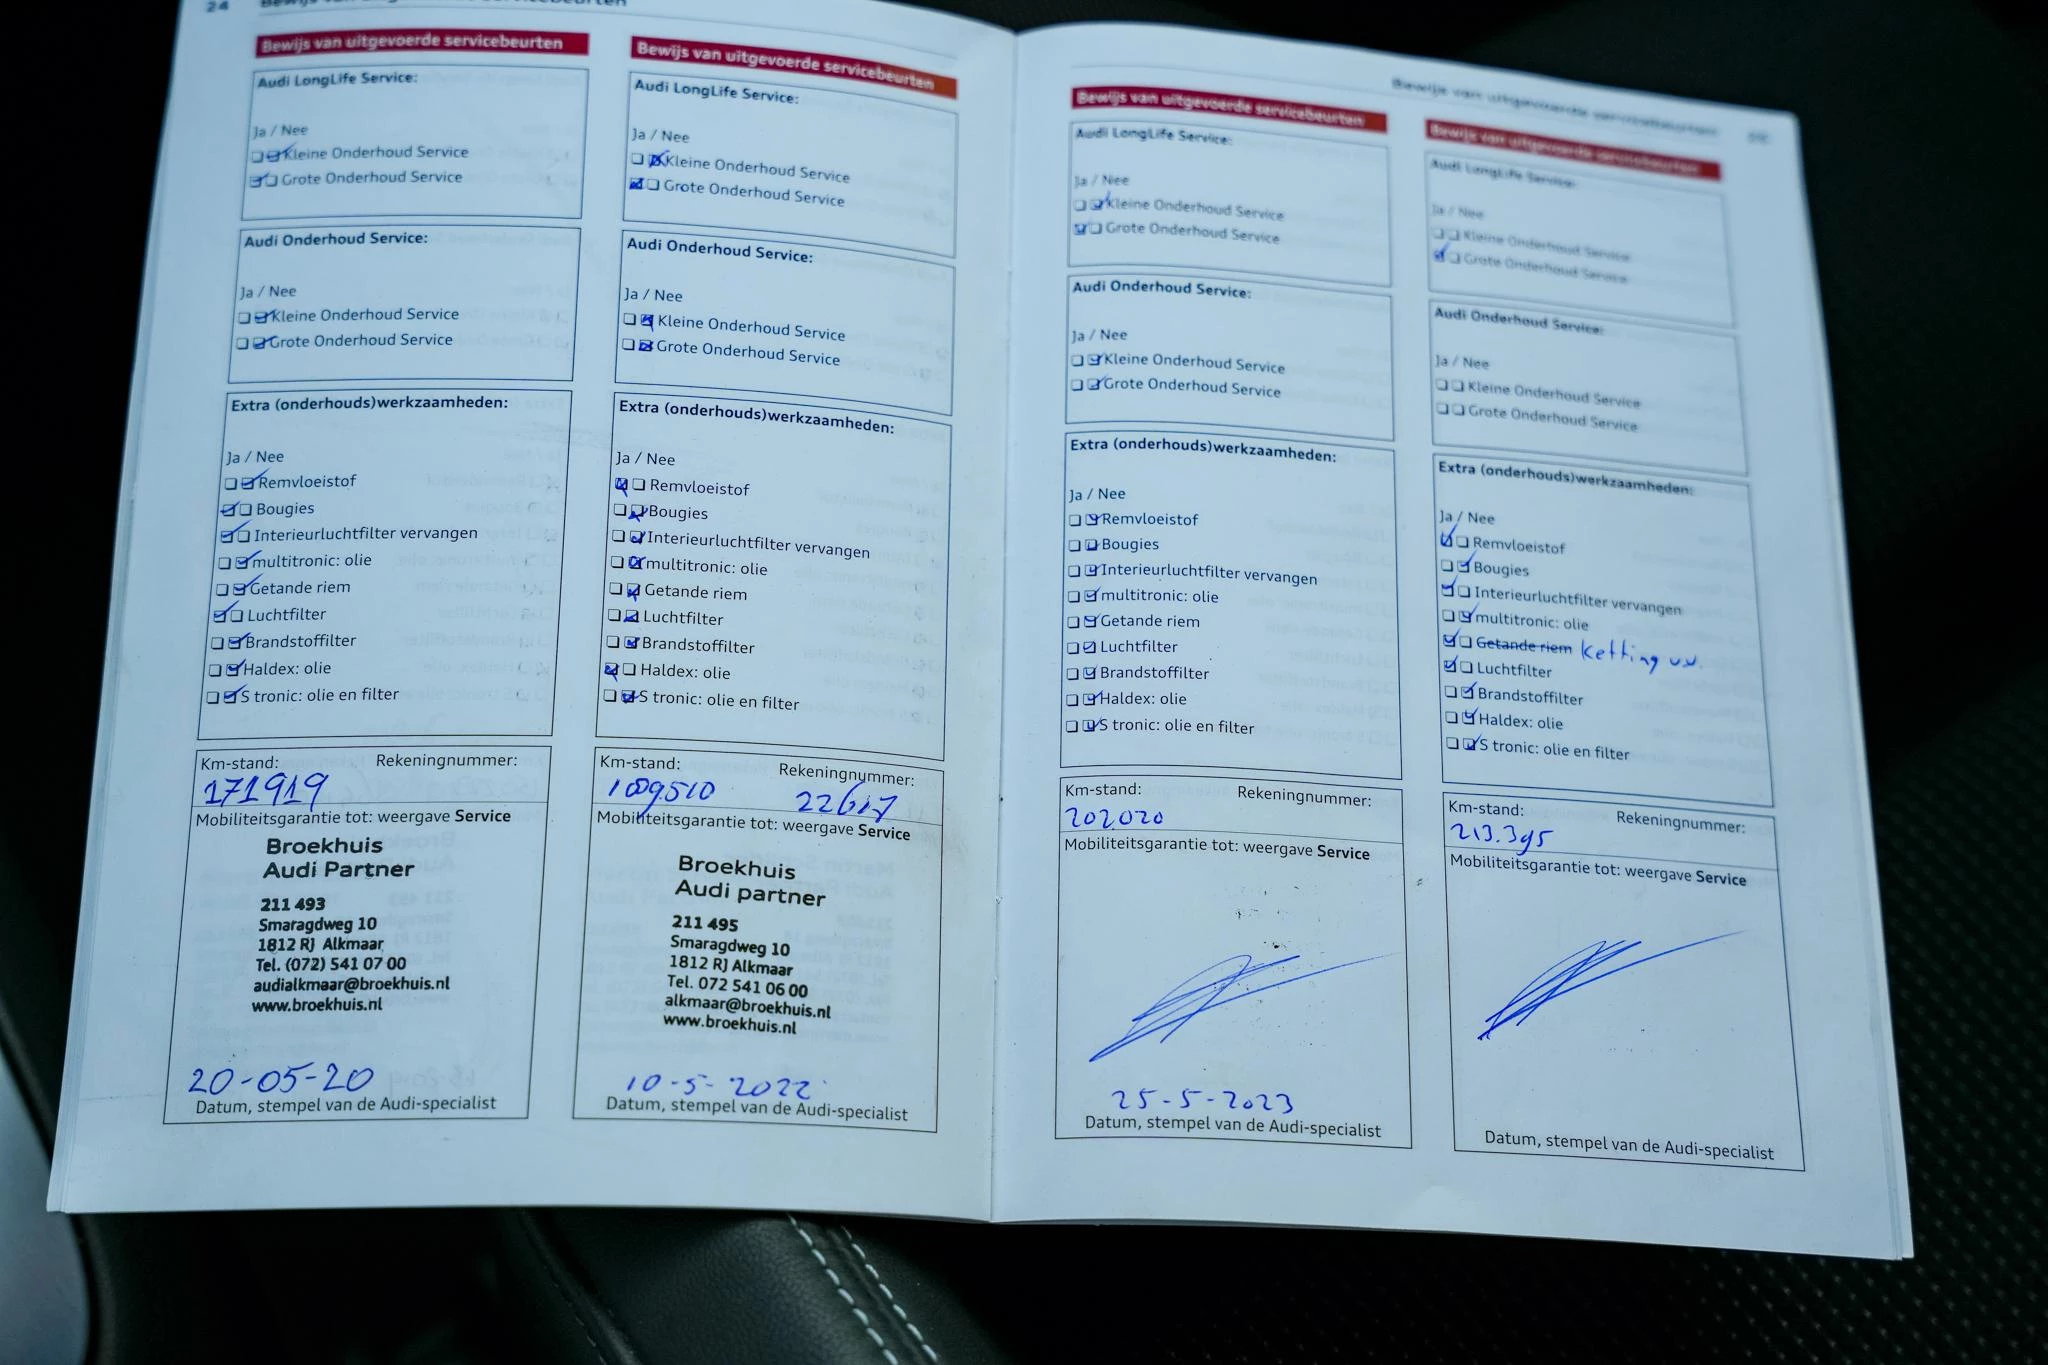 24 Bewijs van uitgevoerde servicebeurten
Bewijs van uitgevoerde servicebeurten
Audi LongLife Service:
Ja / Nee
Kleine Onderhoud Service
Grote Onderhoud Service
Audi Onderhoud Service:
Ja / Nee
Kleine Onderhoud Service
Grote Onderhoud Service
Extra (onderhouds)werkzaamheden:
Ja / Nee
Remvloeistof
Bougies
Interieurluchtfilter vervangen
multitronic: olie
Getande riem
Luchtfilter
Brandstoffilter
Haldex: olie
S tronic: olie en filter
Km-stand: Rekeningnummer:
171919
Mobiliteitsgarantie tot: weergave Service
Broekhuis
Audi Partner
211 493
Smaragdweg 10
1812 RJ Alkmaar
Tel. (072) 541 07 00
audialkmaar@broekhuis.nl
www.broekhuis.nl
20-05-20
Datum, stempel van de Audi-specialist
Bewijs van uitgevoerde servicebeurten
Audi LongLife Service:
Ja / Nee
Kleine Onderhoud Service
Grote Onderhoud Service
Audi Onderhoud Service:
Ja / Nee
Kleine Onderhoud Service
Grote Onderhoud Service
Extra (onderhouds)werkzaamheden:
Ja / Nee
Remvloeistof
Bougies
Interieurluchtfilter vervangen
multitronic: olie
Getande riem
Luchtfilter
Brandstoffilter
Haldex: olie
S tronic: olie en filter
Km-stand: Rekeningnummer:
189510
Mobiliteitsgarantie tot: weergave Service
Broekhuis
Audi partner
211 495
Smaragdweg 10
1812 RJ Alkmaar
Tel. 072 541 06 00
alkmaar@broekhuis.nl
www.broekhuis.nl
10-5-2022
Datum, stempel van de Audi-specialist
Bewijs van uitgevoerde servicebeurten
Bewijs van uitgevoerde servicebeurten
Audi LongLife Service:
Ja / Nee
Kleine Onderhoud Service
Grote Onderhoud Service
Audi Onderhoud Service:
Ja / Nee
Kleine Onderhoud Service
Grote Onderhoud Service
Extra (onderhouds)werkzaamheden:
Ja / Nee
Remvloeistof
Bougies
Interieurluchtfilter vervangen
multitronic: olie
Getande riem
Luchtfilter
Brandstoffilter
Haldex: olie
S tronic: olie en filter
Km-stand: Rekeningnummer:
202020
Mobiliteitsgarantie tot: weergave Service
25-5-2023
Datum, stempel van de Audi-specialist
Bewijs van uitgevoerde servicebeurten
Audi LongLife Service:
Ja / Nee
Kleine Onderhoud Service
Grote Onderhoud Service
Audi Onderhoud Service:
Ja / Nee
Kleine Onderhoud Service
Grote Onderhoud Service
Extra (onderhouds)werkzaamheden:
Ja / Nee
Remvloeistof
Bougies
Interieurluchtfilter vervangen
multitronic: olie
Getande riem Ketting v.v.
Luchtfilter
Brandstoffilter
Haldex: olie
S tronic: olie en filter
Km-stand: Rekeningnummer:
213.395
Mobiliteitsgarantie tot: weergave Service
Datum, stempel van de Audi-specialist